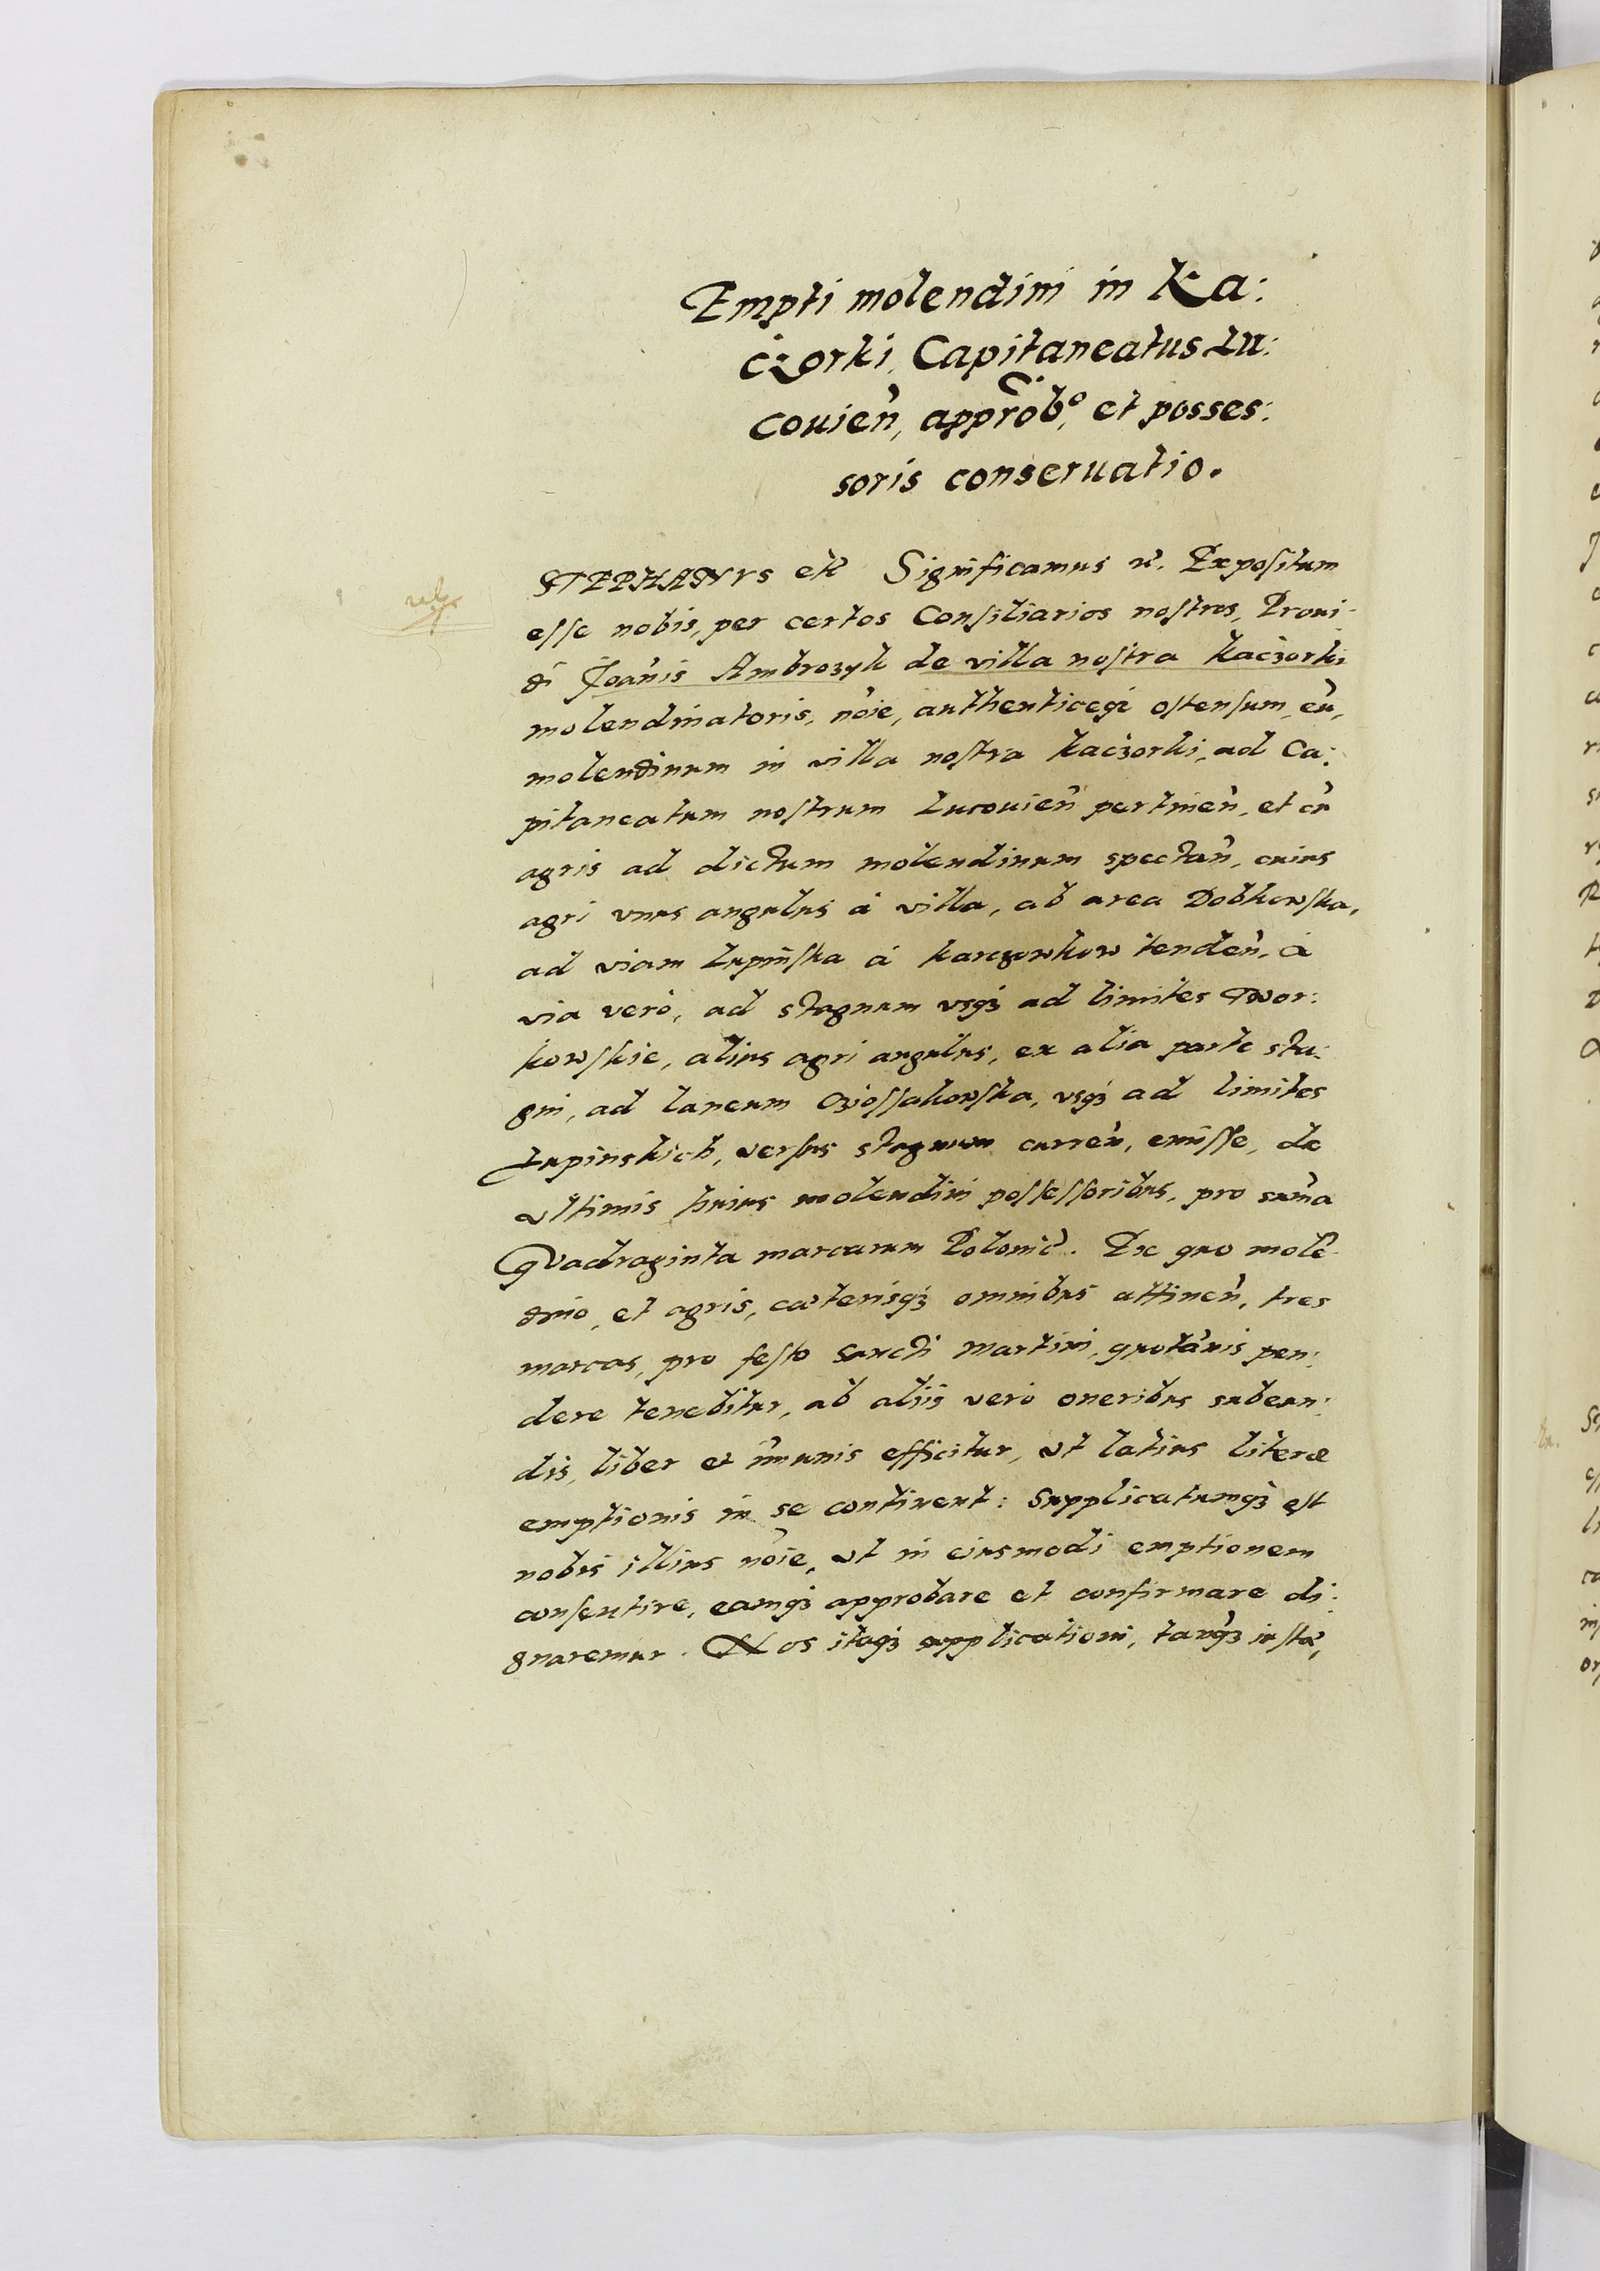 Empti molendini in Ka:
czorki, Capitaneatus Lu:
couien, approbo, et posses:
soris conseruatio.
STEPHANVS etc Significamus etc. Expositum
esse nobis, per certos Consiliarios nostros, Proui-
di Joanis Ambrozyk de villa nostra Kaczorki
molendinatoris, noie, authenticeqz ostensum, eu,
molendinum in villa nostra Kaczorki, ad Ca:
pitaneatum nostrum Lucouien pertinen, et cu
agris ad dictum molendinum spectan, cuius
agri vnus angulus à villa, ab area Dobkowska,
ad viam Lupinska à karczowkow tenden, à
via verò, ad stagnum vsqz ad limites Twor:
kowskie, alius agri angulus, ex alia parte sta:
gni, ad laneum Ossakowska, vsqz ad limites
Lupinskich, versus stagnum curren, emisse, de
vltimis huius molendini possessoribus, pro suma
Quadraginta marcarum Polonic. Ex quo mole-
dino, et agris, cæterisqz omnibus attinen, tres
marcas, pro festo Sancti Martini, quotanis pen:
dere tenebitur, ab aliis verò oneribus subeun:
dis, liber et imunis efficitur, vt latius literæ
emptionis in se continent: Supplicatumqz est
nobis illius noie, vt in eiusmodi emptionem
consentire, eamqz approbare et confirmare di:
gnaremur. Nos itaqz supplicationi, tanqz iustæ,